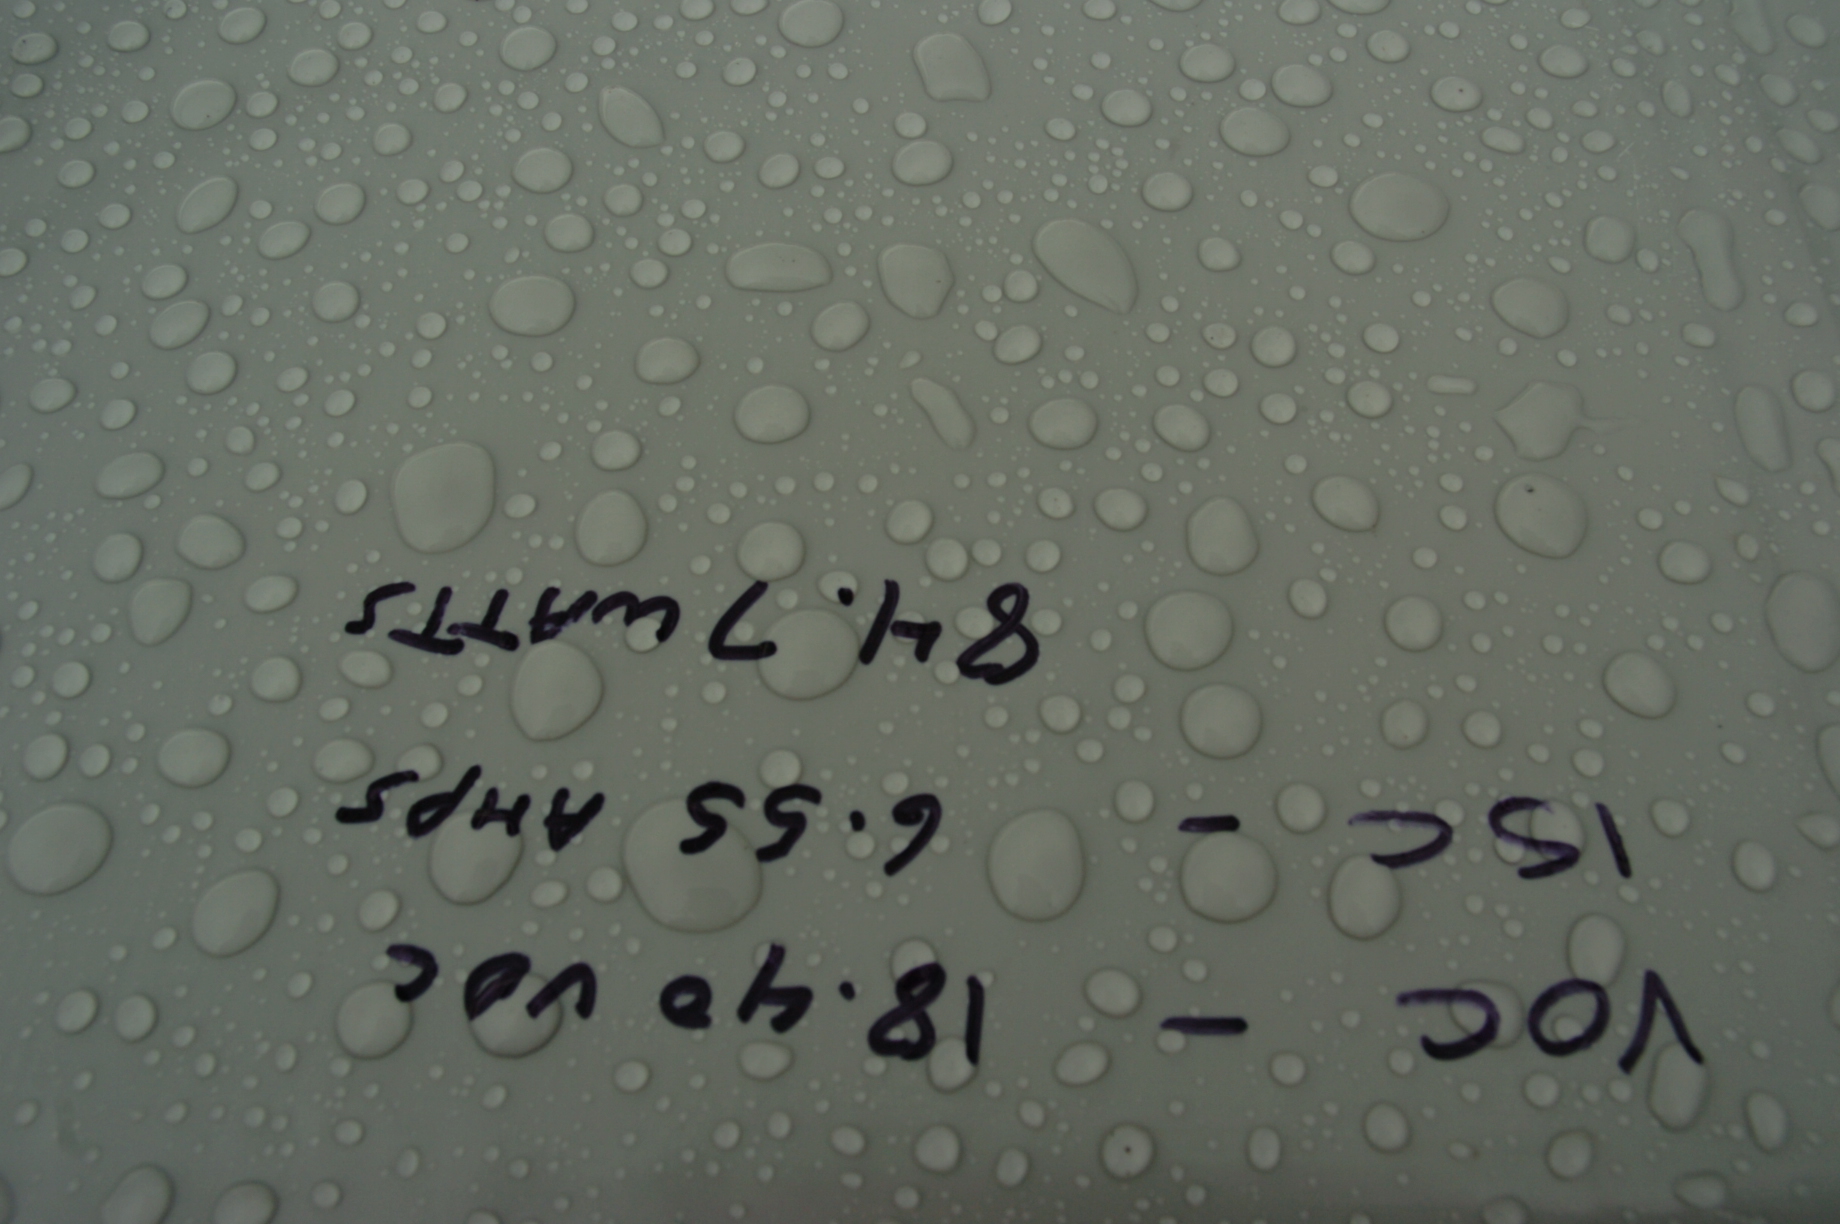 VOC - 18.40 VDC
ISC - 6.55 AMPS
84.7 WATTS